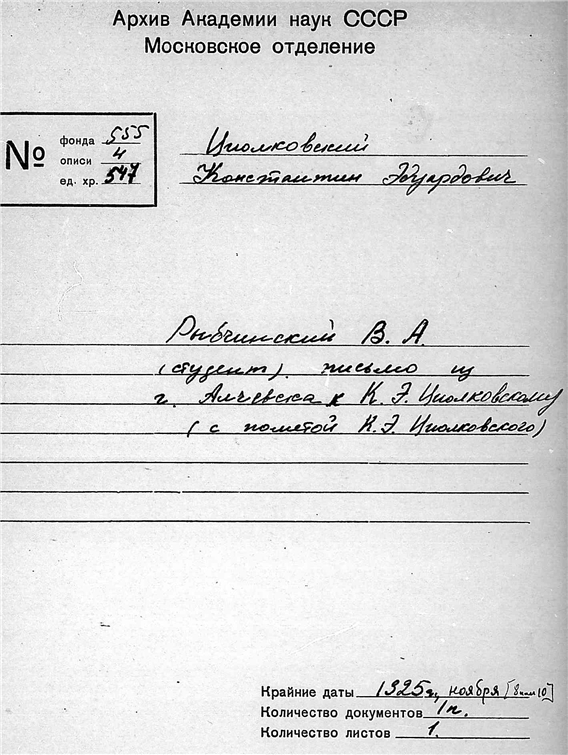 Архив Академии наук СССР
Московское отделение
№
фонда 555
описи 4
ед. хр. 547
Циолковский
Константин Эдуардович
Рыбчинский В. А.
(студент). письмо из
г. Алчевска к К. Э. Циолковскому
(с пометой К. Э. Циолковского)
Крайние даты 1925г, ноября [8 или 10]
Количество документов 1п.
Количество листов 1.